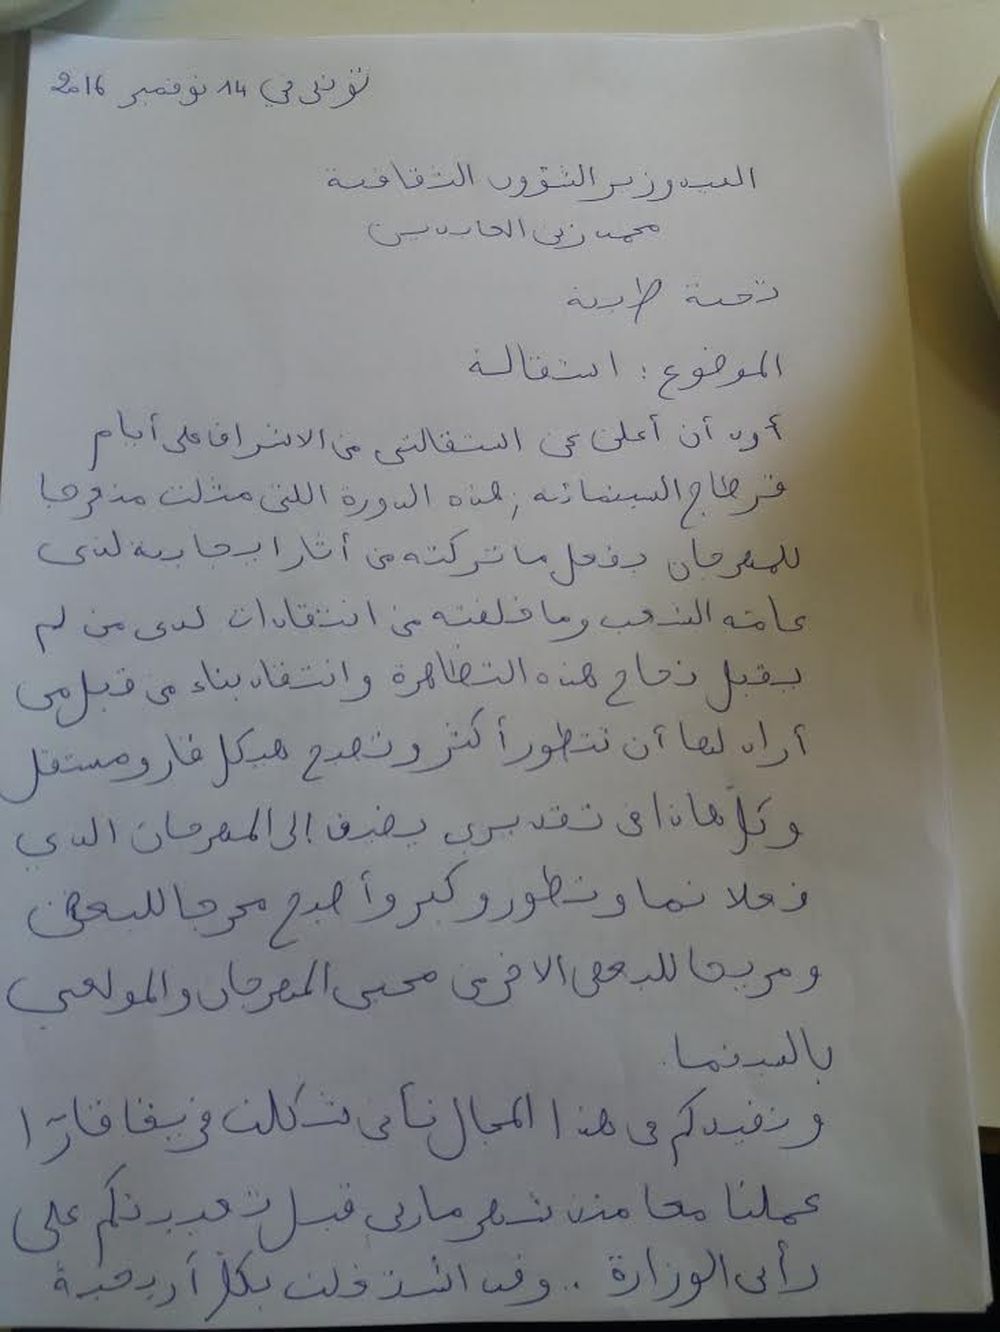 تونس في 14 نوفمبر 2016
السيد وزير الشؤون الثقافية
محمد زين العابدين
تحية طيبة
الموضوع : استقالة
أود أن أعلن عن استقالتي من الاشراف على أيام
قرطاج السينمائية , هذه الدورة اللتي مثلت منعرجا
للمهرجان بفعل ما تركته من أثار ايجابية لدى
عامة الشعب وما خلفته من انتقادات لدى من لم
يقبل نجاح هذه التظاهرة وانتقاد بناء من قبل من
أراد لها أن تتطور أكثر وتصبح هيكل قار ومستقل
وكلّ هاذا في تقديري يضيف إلى المهرجان الذي
فعلا نما وتطور وكبر وأصبح محرجا للبعض
ومربحا للبعض الاخر من محبي المهرجان والمولعين
بالسينما.
ونفيدكم في هذا المجال بأني شكلت فريقا قارّا
عملنا معا منذ شهر مارس قبل تعيينكم على
رأس الوزارة .. وقد اشتغلت بكلّ أريحية